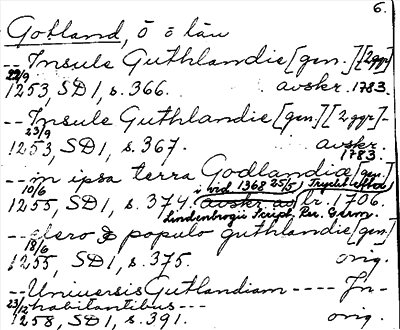 6.
Gotland, ö o län
-- Insule Guthlandie [gen.] [2 ggr]
22/9
1253, SD 1, s. 366. avskr. 1783.
-- Insule Guthlandie [gen.] [2 ggr] -
23/9
1253, SD 1, s. 367. avskr. 1783.
-- in ipsa terra Godlandiæ [gen.]
10/6 i vid. 1368 25/5, Tryckt efter
1255, SD 1, s. 374. avskr. av fr. 1706.
Lindenbrogii Script. Rer. Germ.
-- clero & populo guthlandie [gen.]
18/6
1255, SD 1, s. 375. orig.
-- Universis Gutlandiam ---- In-
23/12 habitantibus ---
1258, SD 1, s. 391. orig.